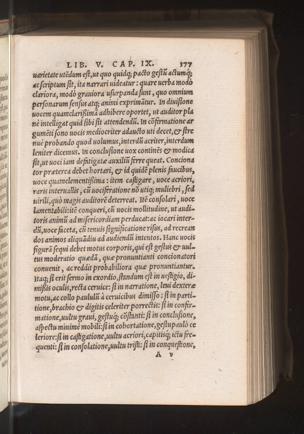 LIB. V. CAP. IX. 377
uarietate utēdum est, ut quo quidq; pacto gestū actumq;
ac scriptum sit, ita narrari uideatur: quare uerba modò
clariora, modò grauiora usurpanda sunt, quo omnium
personarum sensus atq; animi exprimātur. In diuisione
uocem quàm clarissimā adhibere oportet, ut auditor pla
nè intelligat quid sibi sit attendendū. In cōfirmatione ar
gumēti sono uocis mediocriter adaucto uti decet, & stre
nuè probando quod uolumus, interdū acriter, interdum
leniter dicemus. In conclusione uox continēs & modica
sit, ut uoci iam defatigatæ auxiliū ferre queat. Conciona
tor præterea debet hortari, & id quidē plenis faucibus,
uoce quàm clementissima: item castigare, uoce acriori,
raris interuallis, cū uociferatione nō utiq; muliebri, sed
uirili, quò magis auditorē deterreat. Itē consolari, uoce
lamentabili: itē conqueri, cū uocis mollitudine, ut audi-
toris animū ad misericordiam perducat: ac iocari inter-
dū, uoce faceta, cū tenuis significatione risus, ad recrean
dos animos aliquādiu ad audiendū intentos. Hanc uocis
figurā sequi debet motus corporis, qui est gestus & uul-
tus moderatio quædā, quæ pronuntianti concionatori
conuenit, ac reddit probabiliora quæ pronuntiantur.
Itaq; si erit sermo in exordio, standum est in uestigio, di-
missis oculis, recta ceruice: si in narratione, leui dexteræ
motu, ac collo paululū à ceruicibus dimisso: si in parti-
tione, brachio & digitis celeriter porrectis: si in confir-
matione, uultu graui, gestuq; cōstanti: si in conclusione,
aspectu minimè mobili: si in cohortatione, gestu paulò ce
leriore: si in castigatione, uultu acriori, capitisq; ictu fre-
quenti: si in consolatione, uultu tristi: si in conquestione,
A v